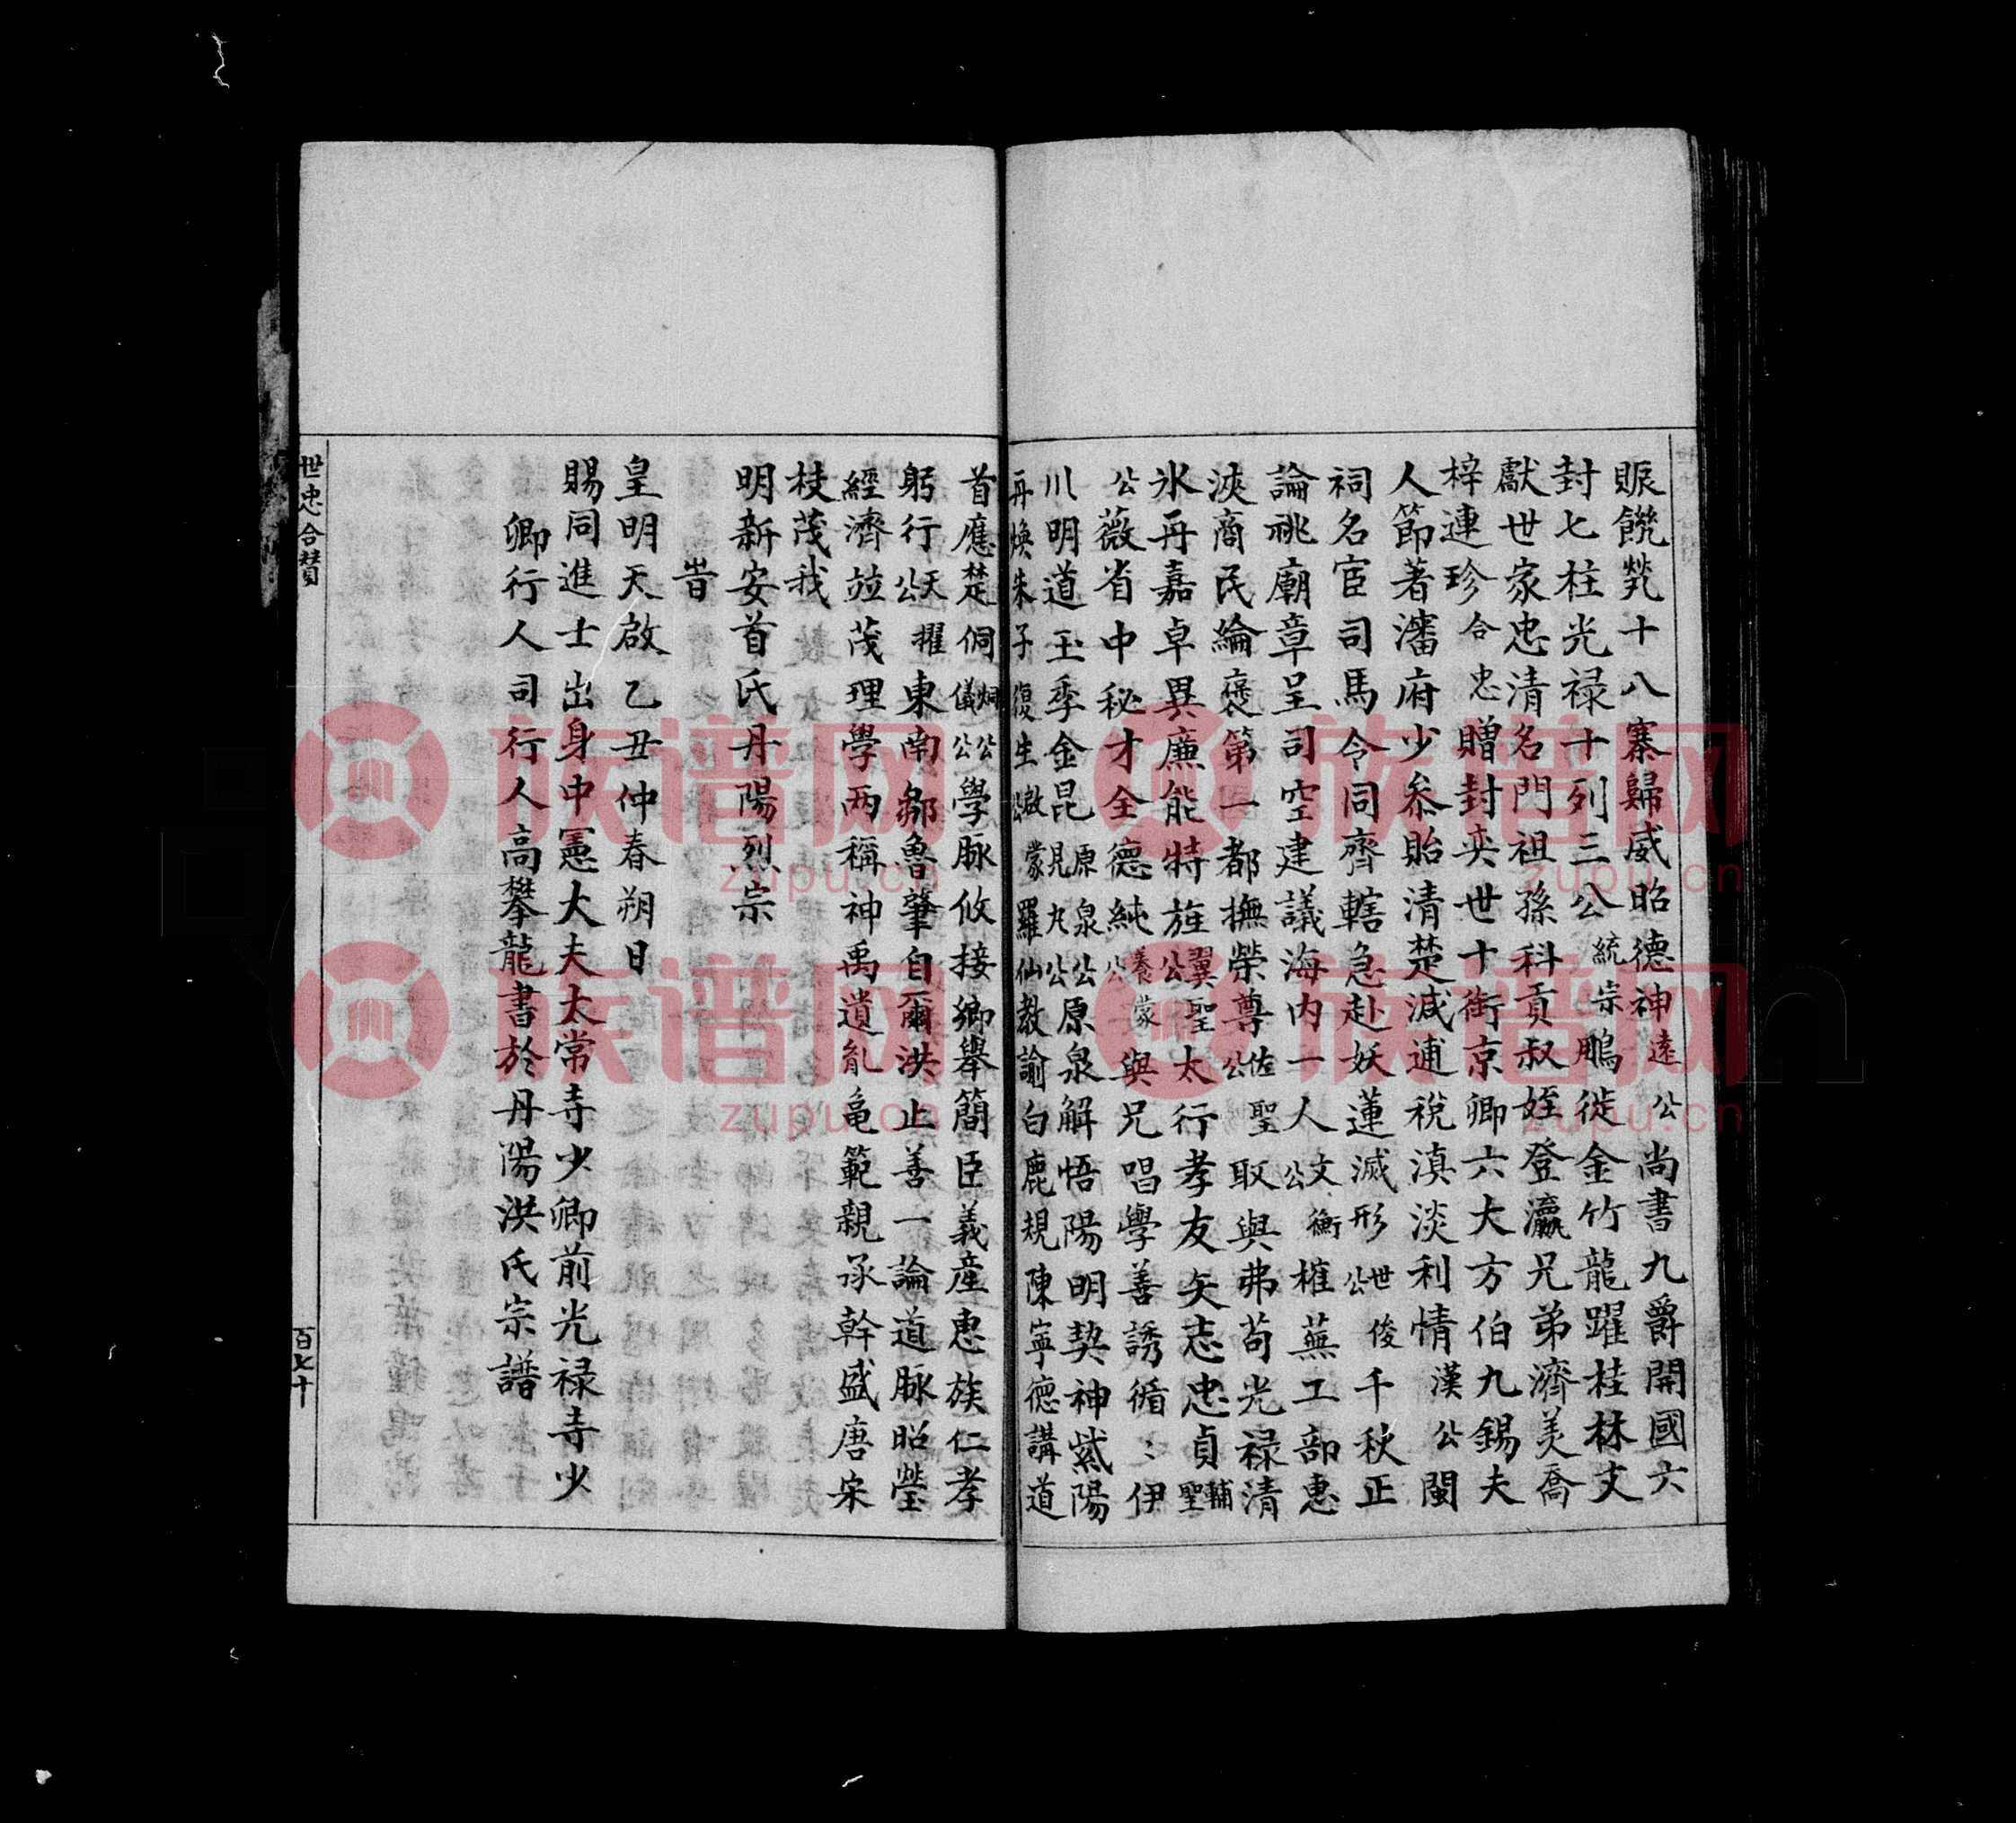 賑饑煢十八寨歸威昭德神遠公尚書九爵開國六
封七柱光禄十列三公統宗鵬徙金竹龍躍桂林文
獻世家忠清名門祖孫科貢叔姪登瀛兄弟濟美喬
梓連珍合忠贈封奕世十街京卿六大方伯九錫夫
人節著瀋府少叅貽清楚減逋稅滇淡利情漢公閩
祠名宦司馬令同齊轄急赴妖蓮滅形世俊公千秋正
論祧廟章呈司空建議海内一人文衡公榷蕪工部惠
浹商民綸褒第一都撫榮尊佐聖公取與弗苟光禄清
氷再嘉卓異廉能特旌翼聖公太行孝友矢志忠貞輔聖
公薇省中秘才全德純養蒙公與兄唱學善誘循〻伊
川明道玉季金昆原泉公見九公原泉解悟陽明契神紫陽
再煥朱子復生啟蒙公羅仙教諭白鹿規陳寧德講道
首應楚侗烱公儀公學脉攸接鄉舉簡臣義産惠族仁孝
躬行天擢公東南鄒魯肇自爾洪止善一論道脉昭瑩
經濟竝茂理學两稱神禹遺胤亀範親承幹盛唐宋
枝茂我
明新安首氏丹陽烈宗
旹
皇明天啟乙丑仲春朔日
賜同進士出身中憲大夫太常寺少卿前光禄寺少
卿行人司行人高攀龍書於丹陽洪氏宗譜
世忠合贊
百七十
族谱网
zupu.cn
族谱网
zupu.cn
族谱网
zupu.cn
族谱网
zupu.cn